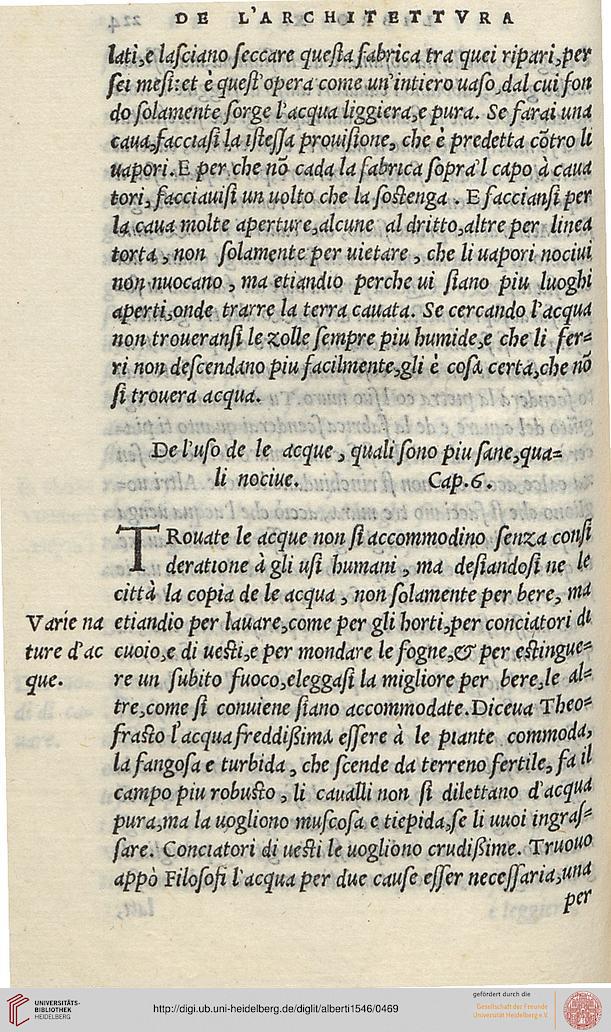 DE L'ARCHITETTVRA
lati,e laſciano ſeccare queſta fabrica tra quei ripari,per
ſei meſi:et è queſt'opera come un'intiero uaſo,dal cui fon
do ſolamente ſorge l'acqua liggiera,e pura. Se farai una
caua,facciaſi la iſteſſa prouiſione, che è predetta cõtro li
uapori.E per che nõ cada la fabrica ſopra'l capo à caua
tori, facciauiſi un uolto che la ſoſtenga . E faccianſi per
la caua molte aperture,alcune al dritto,altre per linea
torta , non ſolamente per uietare , che li uapori nociui
non nuocano , ma etiandio perche ui ſiano piu luoghi
aperti,onde trarre la terra cauata. Se cercando l'acqua
non troueranſi le zolle ſempre piu humide,e che li fer=
ri non deſcendano piu facilmente,gli è coſa certa,che nõ
ſi trouera acqua.
De l'uſo de le acque , quali ſono piu ſane,qua=
li nociue. Cap.6.
TRouate le acque non ſi accommodino ſenza conſi
deratione à gli uſi humani , ma deſiandoſi ne le
città la copia de le acqua , non ſolamente per bere, ma
Varie na
ture d'ac
que.
etiandio per lauare,come per gli horti,per conciatori di
cuoio,e di ueſti,e per mondare le fogne,& per eſtingue=
re un ſubito fuoco,eleggaſi la migliore per bere,le al=
tre,come ſi conuiene ſiano accommodate.Diceua Theo=
fraſto l'acqua freddißima eſſere à le piante commoda,
la fangoſa e turbida , che ſcende da terreno fertile, fa il
campo piu robuſto , li caualli non ſi dilettano d'acqua
pura,ma la uogliono muſcoſa e tiepida,ſe li uuoi ingraſ=
ſare. Conciatori di ueſti le uogliono crudißime. Truouo
appò Filoſofi l'acqua per due cauſe eſſer neceſſaria,una
per
UNIVERSITÄTS-
BIBLIOTHEK
HEIDELBERG
http://digi.ub.uni-heidelberg.de/diglit/alberti1546/0469
gefördert durch die
Gesellschaft der Freunde
Universität Heidelberg e.V.